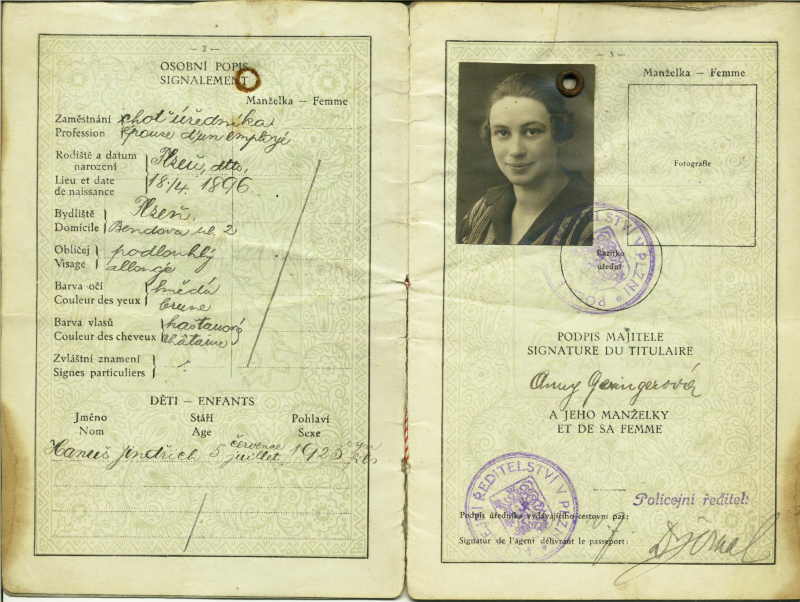 — 2 —
OSOBNÍ POPIS
SIGNALEMENT
Manželka — Femme
Zaměstnání choť úředníka
Profession épouse d'un employé
Rodiště a datum narození Plzeň, dtto,
Lieu et date de naissance 18/4. 1896
Bydliště Plzeň,
Domicile Bendova ul. 2
Obličej podlouhlý
Visage allongé
Barva očí hnědá
Couleur des yeux brune
Barva vlasů kaštanová
Couleur des cheveux châtaine
Zvláštní znamení
Signes particuliers
DĚTI — ENFANTS
Jméno Stáří Pohlaví
Nom Age Sexe
Hanuš Jindřich 5 července
juillet 1925 syn
fils
— 3 —
Manželka — Femme
Fotografie
Razítko
úřední
ŘEDITELSTVÍ V PLZNI
PODPIS MAJITELE
SIGNATURE DU TITULAIRE
Anny Geringerová
A JEHO MANŽELKY
ET DE SA FEMME
ŘEDITELSTVÍ V PLZNI
Policejní ředitel:
Podpis úředníka vydávajícího cestovní pas:
Signatur de l'agent délivrant le passeport: